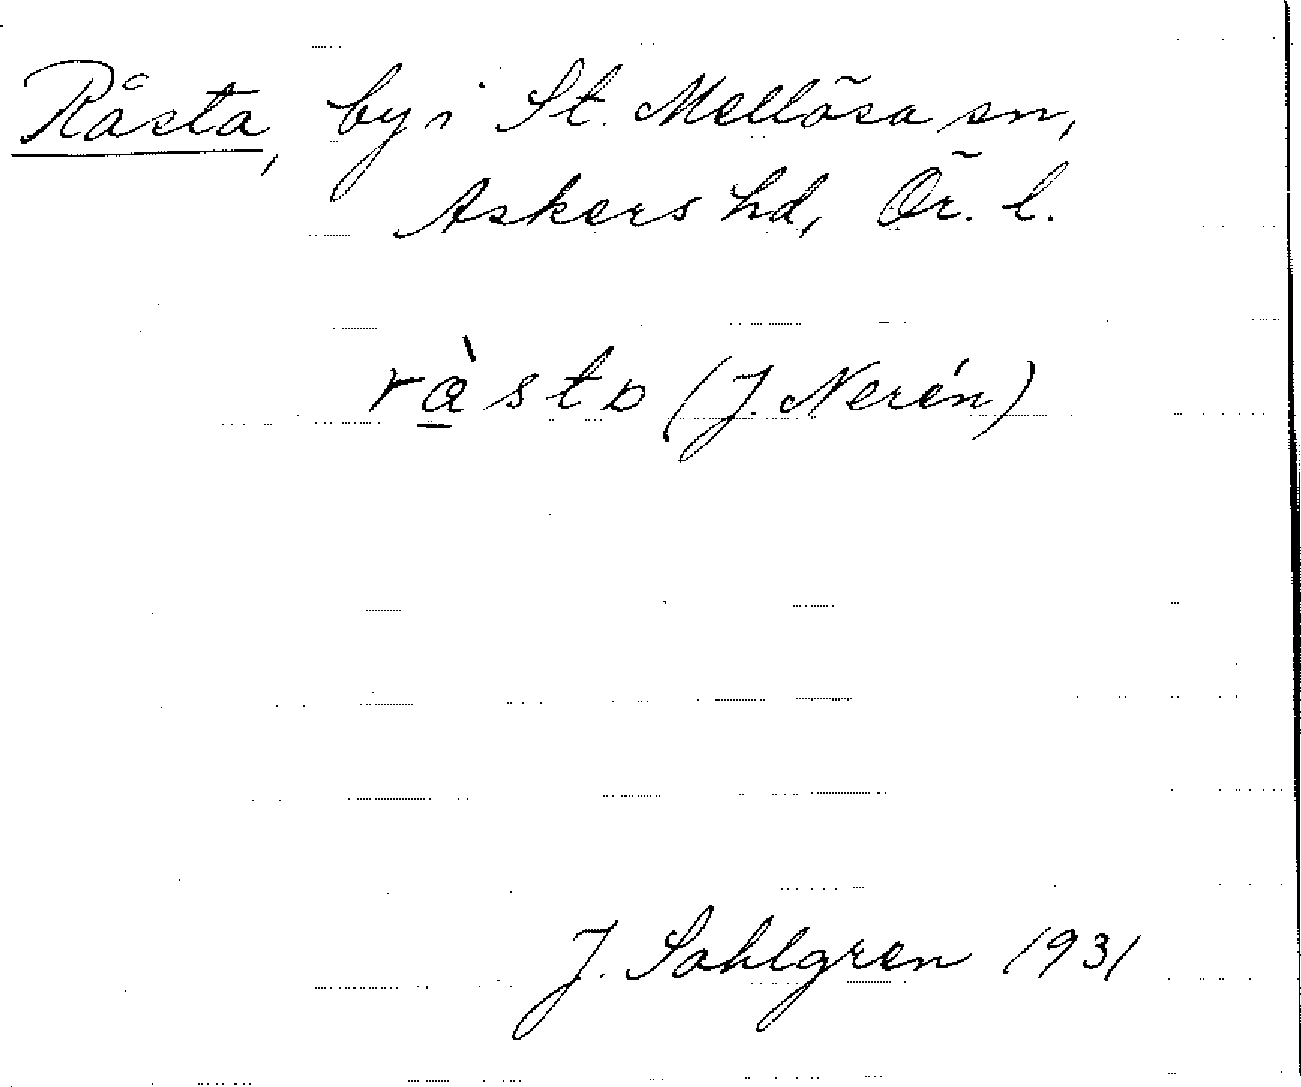 Råsta, by i St. Mellösa sn,
Askers hd, Ör. l.
ràsta (J. Nerén)
J. Sahlgren 1931